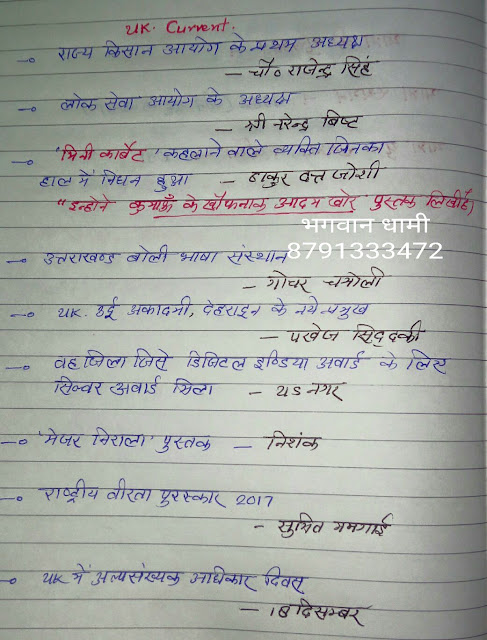 UK. Current.
राज्य किसान आयोग के प्रथम अध्यक्ष
— चौ० राजेन्द्र सिंह
लोक सेवा आयोग के अध्यक्ष
— श्री नरेन्द्र बिष्ट
'मिनी कार्बेट' कहलाने वाले व्यक्ति जिनका
हाल में निधन हुआ — ठाकुर दत्त जोशी
"इन्होने कुमाऊँ के खौफनाक आदम खोर पुस्तक लिखी है)
भगवान धामी
8791333472
उत्तराखण्ड बोली भाषा संस्थान
— गोचर चमोली
UK. उर्दू अकादमी, देहरादून के नये प्रमुख
— परवेज सिद्दकी
वह जिला जिसे डिजिटल इण्डिया अवार्ड के लिए
सिल्वर अवार्ड मिला — USनगर
'मेजर निराला' पुस्तक — निशंक
राष्ट्रीय वीरता पुरस्कार 2017
— सुमित ममगाई
UK में अल्पसंख्यक अधिकार दिवस
— 18 दिसम्बर